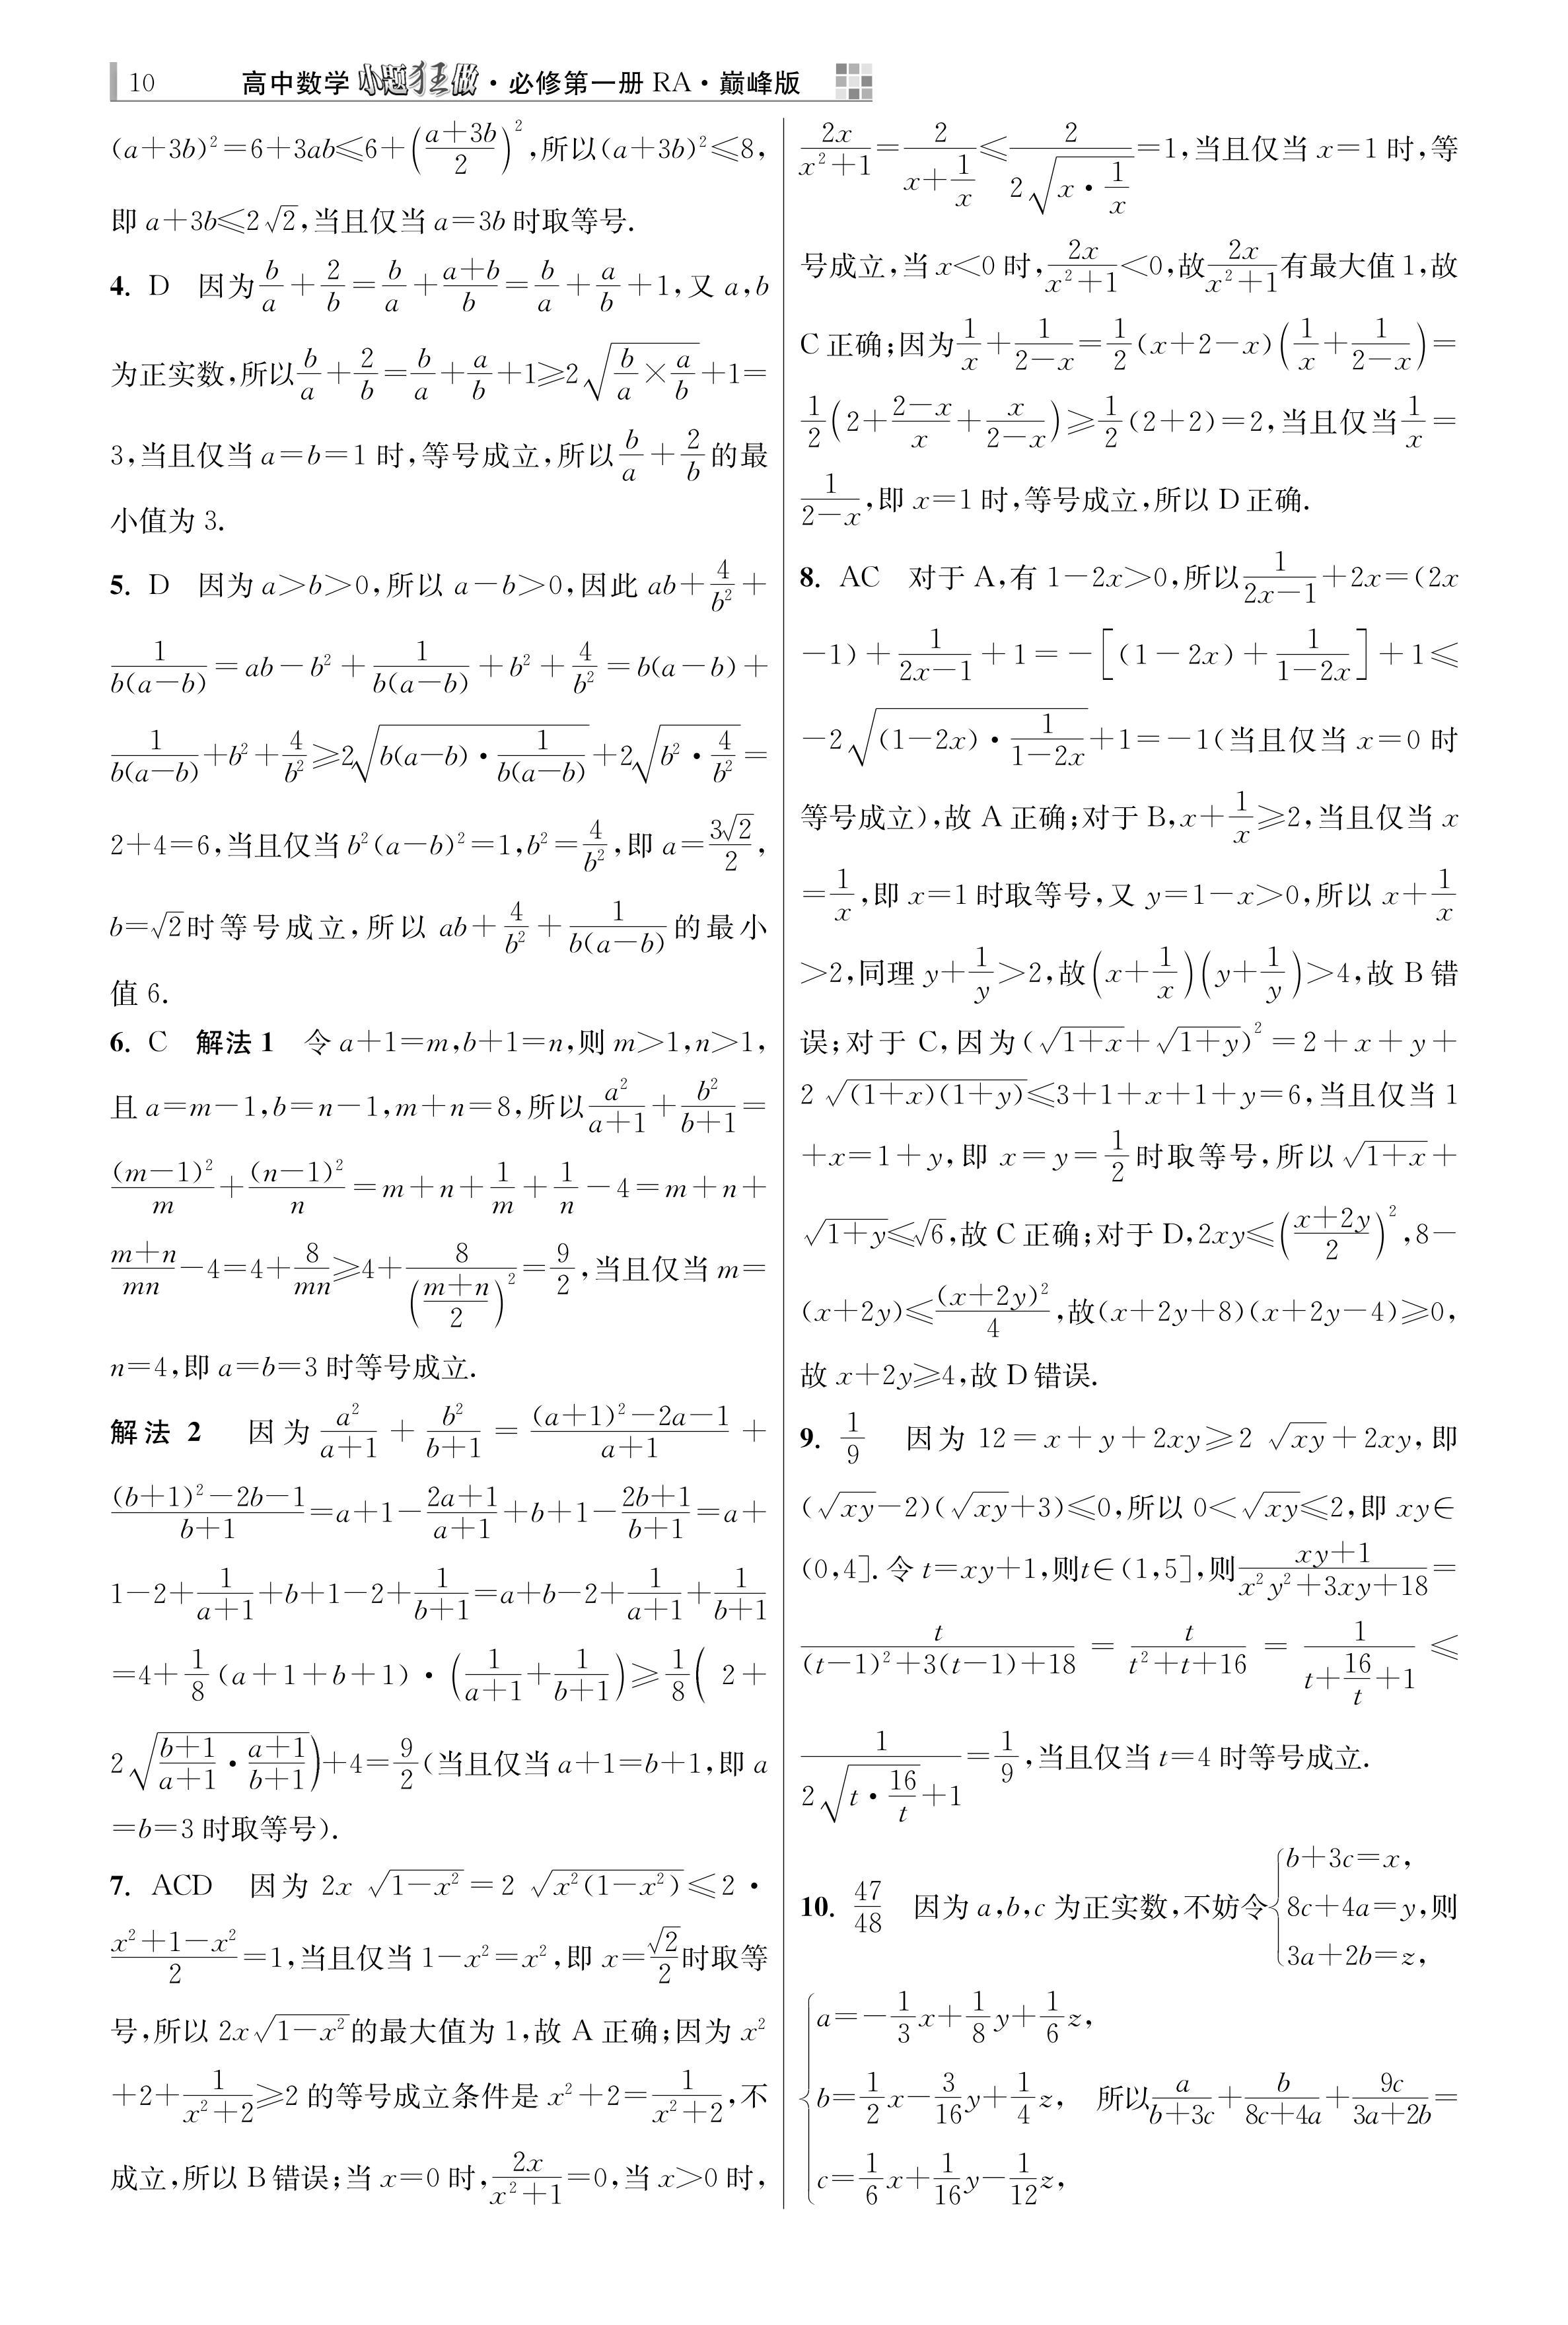 10 高中数学小题狂做·必修第一册 RA·巅峰版
(a+3b)²=6+3ab≤6+((a+3b)/2)²,所以(a+3b)²≤8,
即 a+3b≤2√2,当且仅当 a=3b 时取等号.
4. D 因为b/a+2/b=b/a+(a+b)/b=b/a+a/b+1,又 a,b
为正实数,所以b/a+2/b=b/a+a/b+1≥2√(b/a×a/b)+1=
3,当且仅当 a=b=1 时,等号成立,所以b/a+2/b的最
小值为 3.
5. D 因为 a>b>0,所以 a-b>0,因此 ab+4/b²+
1/(b(a-b))=ab-b²+1/(b(a-b))+b²+4/b²=b(a-b)+
1/(b(a-b))+b²+4/b²≥2√(b(a-b)·1/(b(a-b)))+2√(b²·4/b²)=
2+4=6,当且仅当 b²(a-b)²=1,b²=4/b²,即 a=3√2/2,
b=√2时等号成立,所以 ab+4/b²+1/(b(a-b))的最小
值 6.
6. C 解法 1 令 a+1=m,b+1=n,则 m>1,n>1,
且 a=m-1,b=n-1,m+n=8,所以a²/(a+1)+b²/(b+1)=
(m-1)²/m+(n-1)²/n=m+n+1/m+1/n-4=m+n+
(m+n)/mn-4=4+8/mn≥4+8/((m+n)/2)²=9/2,当且仅当 m=
n=4,即 a=b=3 时等号成立.
解法 2 因为a²/(a+1)+b²/(b+1)=((a+1)²-2a-1)/(a+1)+
((b+1)²-2b-1)/(b+1)=a+1-(2a+1)/(a+1)+b+1-(2b+1)/(b+1)=a+
1-2+1/(a+1)+b+1-2+1/(b+1)=a+b-2+1/(a+1)+1/(b+1)
=4+1/8(a+1+b+1)·(1/(a+1)+1/(b+1))≥1/8(2+
2√((b+1)/(a+1)·(a+1)/(b+1)))+4=9/2(当且仅当 a+1=b+1,即 a
=b=3 时取等号).
7. ACD 因为 2x√(1-x²)=2√(x²(1-x²))≤2·
(x²+1-x²)/2=1,当且仅当 1-x²=x²,即 x=√2/2时取等
号,所以 2x√(1-x²)的最大值为 1,故 A 正确;因为 x²
+2+1/(x²+2)≥2 的等号成立条件是 x²+2=1/(x²+2),不
成立,所以 B 错误;当 x=0 时,2x/(x²+1)=0,当 x>0 时,
2x/(x²+1)=2/(x+1/x)≤2/(2√(x·1/x))=1,当且仅当 x=1 时,等
号成立,当 x<0 时,2x/(x²+1)<0,故2x/(x²+1)有最大值 1,故
C 正确;因为1/x+1/(2-x)=1/2(x+2-x)(1/x+1/(2-x))=
1/2(2+(2-x)/x+x/(2-x))≥1/2(2+2)=2,当且仅当1/x=
1/(2-x),即 x=1 时,等号成立,所以 D 正确.
8. AC 对于 A,有 1-2x>0,所以1/(2x-1)+2x=(2x
-1)+1/(2x-1)+1=-[(1-2x)+1/(1-2x)]+1≤
-2√((1-2x)·1/(1-2x))+1=-1(当且仅当 x=0 时
等号成立),故 A 正确;对于 B,x+1/x≥2,当且仅当 x
=1/x,即 x=1 时取等号,又 y=1-x>0,所以 x+1/x
>2,同理 y+1/y>2,故(x+1/x)(y+1/y)>4,故 B 错
误;对于 C,因为(√(1+x)+√(1+y))²=2+x+y+
2√((1+x)(1+y))≤3+1+x+1+y=6,当且仅当 1
+x=1+y,即 x=y=1/2时取等号,所以√(1+x)+
√(1+y)≤√6,故 C 正确;对于 D,2xy≤((x+2y)/2)²,8-
(x+2y)≤(x+2y)²/4,故(x+2y+8)(x+2y-4)≥0,
故 x+2y≥4,故 D 错误.
9. 1/9 因为 12=x+y+2xy≥2√xy+2xy,即
(√xy-2)(√xy+3)≤0,所以 0<√xy≤2,即 xy∈
(0,4].令 t=xy+1,则t∈(1,5],则(xy+1)/(x²y²+3xy+18)=
t/((t-1)²+3(t-1)+18)=t/(t²+t+16)=1/(t+16/t+1)≤
1/(2√(t·16/t)+1)=1/9,当且仅当 t=4 时等号成立.
10. 47/48 因为 a,b,c 为正实数,不妨令{b+3c=x, 8c+4a=y, 3a+2b=z,则
{a=-1/3x+1/8y+1/6z,
b=1/2x-3/16y+1/4z, 所以a/(b+3c)+b/(8c+4a)+9c/(3a+2b)=
c=1/6x+1/16y-1/12z,